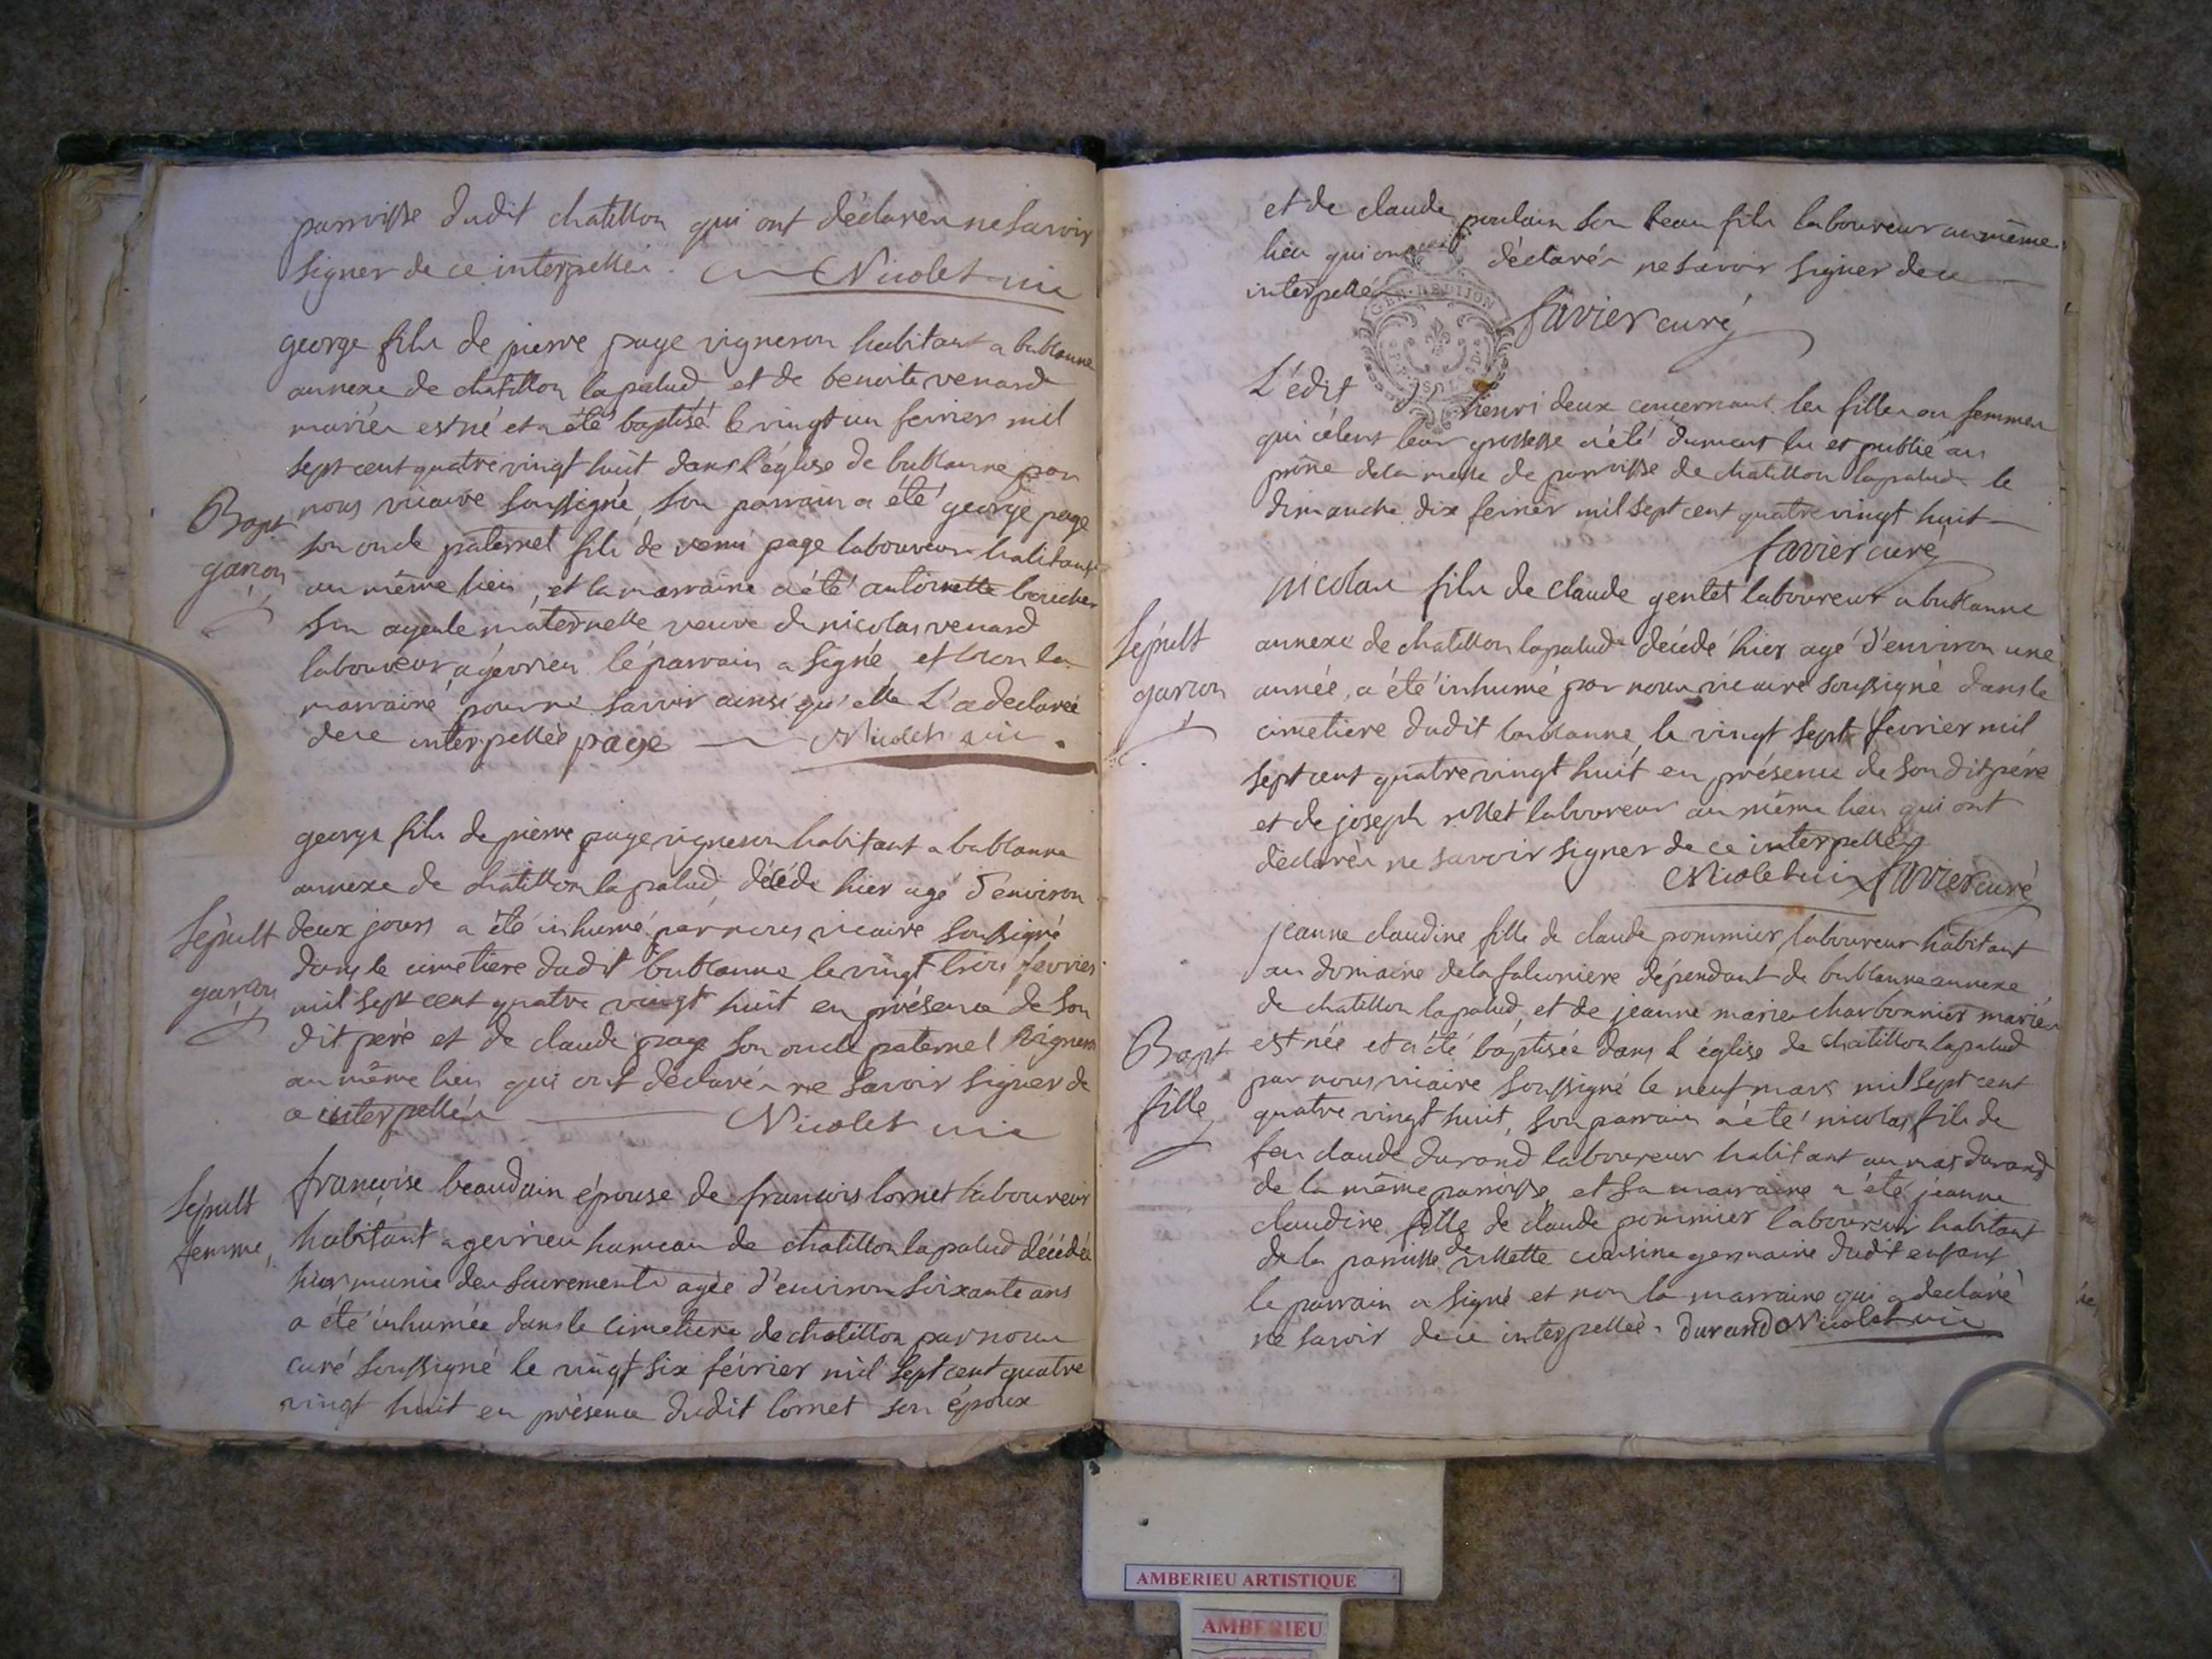 parroisse dudit chatillon qui ont déclarés ne savoir
signer de ce interpellés. Nicolet vic
george fils de pierre page vigneron habitant a bublanne
annexe de chatillon la palud et de benoite venard
mariés est né et a été baptisé le vingt un fevrier mil
sept cent quatre vingt huit dans l'église de bublanne par
Bapt
garçon
nous vicaire soussigné, son parrain a été george page
son oncle paternel fils de page laboureur habitant
au même lieu, et la marraine a été antoinette boucher
son ayeule maternelle veuve de nicolas venard
laboureur a gevrieu le parrain a signé et non la
marraine pour ne savoir ainsi qu'elle L'a declarée
de ce interpellée page Nicolet vic.
george fils de pierre page vigneron habitant a bublanne
annexe de chatillon la palud, décédé hier agé d'environ
Sépult
garçon
deux jours a été inhumé par nous vicaire soussigné
dans le cimetiere dudit bublanne le vingt trois fevrier
mil sept cent quatre vingt huit en présence de son
dit pere et de claude page son oncle paternel vigneron
au même lieu qui ont déclarés ne savoir signer de
ce interpellés Nicolet vic
Sépult
femme
françoise beaudain épouse de francois lornet laboureur
habitant a gevrieu hameau de chatillon la palud décédée
hier munie des sacrements agée d'environ soixante ans
a été inhumée dans le cimetiere de chatillon par nous
curé soussigné le vingt six février mil sept cent quatre
vingt huit en présence dudit lornet son époux
et de claude poulain son beau fils laboureur au même
lieu qui ont déclarés ne savoir signer de ce
interpellés
GEN. DE DIJON
favier curé
L'édit henri deux concernant les filles ou femmes
qui célent leur grossesse a été dument lu et publié au
prône de la messe de parroisse de chatillon la palud le
dimanche dix fevrier mil sept cent quatre vingt huit
favier curé
nicolas fils de claude gentet laboureur a bublanne
Sépult
garçon
annexe de chatillon la palud décédé hier agé d'environ une
année, a été inhumé par nous vicaire soussigné dans le
cimetiere dudit bublanne, le vingt sept fevrier mil
sept cent quatre vingt huit en présence de son dit père
et de joseph rollet laboureur au même lieu qui ont
déclarés ne savoir signer de ce interpellés
Nicolet vic favier curé
jeanne claudine fille de claude pommier laboureur habitant
au domaine de la falconiere dépendant de bublanne annexe
de chatillon la palud, et de jeanne marie charbonnier mariés
Bapt
fille
est née et a été baptisée dans l'église de chatillon la palud
par nous vicaire soussigné le neuf mars mil sept cent
quatre vingt huit, son parrain a été nicolas fils de
feu claude durand laboureur habitant au mas durand
de la même parroisse et sa marraine a été jeanne
claudine fille de claude pommier laboureur habitant
de la parroisse de villette cousine germaine dudit enfant
le parrain a signé et non la marraine qui a declaré
ne savoir de ce interpellée. durand Nicolet vic
AMBERIEU ARTISTIQUE
AMBERIEU